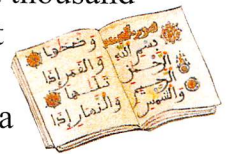 thousand
t
a
بسم الله
الرحمن
الرحيم
والشمس
وضحها
والقمر إذا
تلها
والنهار إذا